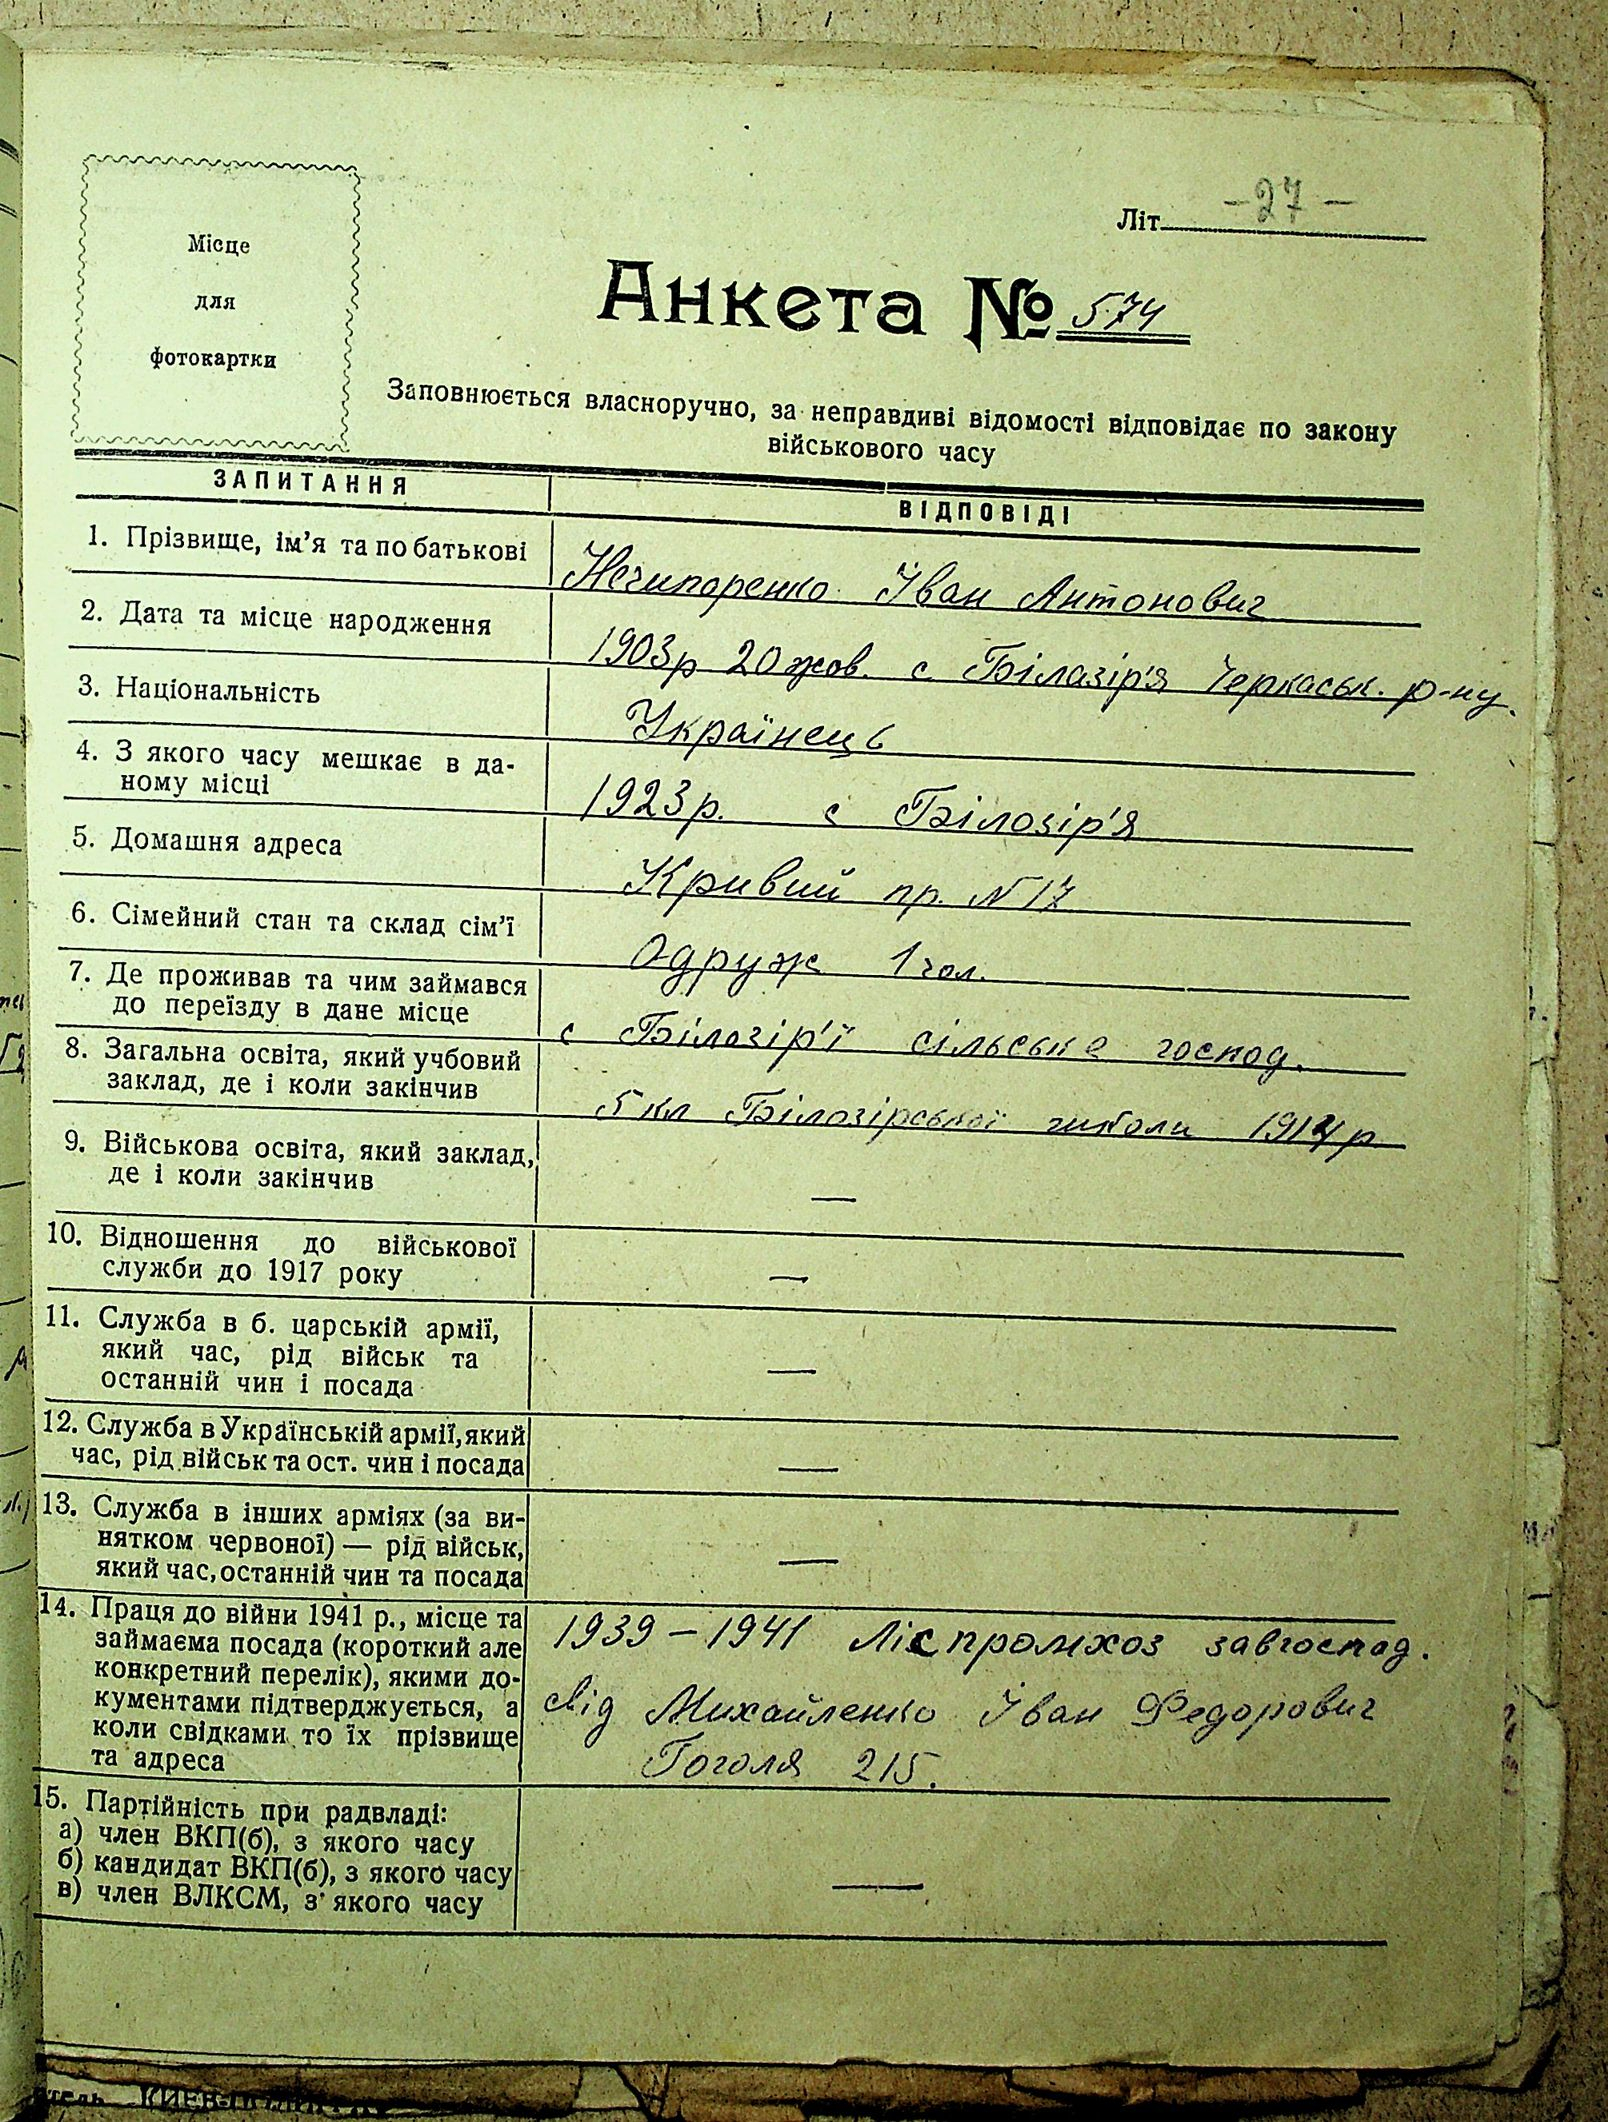 Місце
для
фотокартки
Літ. -27-
Анкета № 574
Заповнюється власноручно, за неправдиві відомості відповідає по закону
військового часу
ЗАПИТАННЯ
ВІДПОВІДІ
1. Прізвище, ім’я та по батькові
Нечипоренко Іван Антонович
2. Дата та місце народження
1903р 20 жов. с Білазір'я Черкаськ. р-ну.
3. Національність
Українець
4. З якого часу мешкає в да-
ному місці
1923р. с Білозір'я
5. Домашня адреса
Кривий пр. N 17
6. Сімейний стан та склад сім’ї
Одруж 1 чол.
7. Де проживав та чим займався
до переїзду в дане місце
с Білозір'ї сільське господ.
8. Загальна освіта, який учбовий
заклад, де і коли закінчив
5 кл Білозірської школи 1914р
9. Військова освіта, який заклад,
де і коли закінчив
—
10. Відношення до військової
служби до 1917 року
—
11. Служба в б. царській армії,
який час, рід військ та
останній чин і посада
—
12. Служба в Українській армії, який
час, рід військ та ост. чин і посада
—
13. Служба в інших арміях (за ви-
нятком червоної) — рід військ,
який час, останній чин та посада
—
14. Праця до війни 1941 р., місце та
займаєма посада (короткий але
конкретний перелік), якими до-
кументами підтверджується, а
коли свідками, то їх прізвище
та адреса
1939 – 1941 Ліспромхоз завгоспод.
свід Михайленко Іван Федорович
Гоголя 215.
15. Партійність при радвладі:
а) член ВКП(б), з якого часу
б) кандидат ВКП(б), з якого часу
в) член ВЛКСМ, з якого часу
—